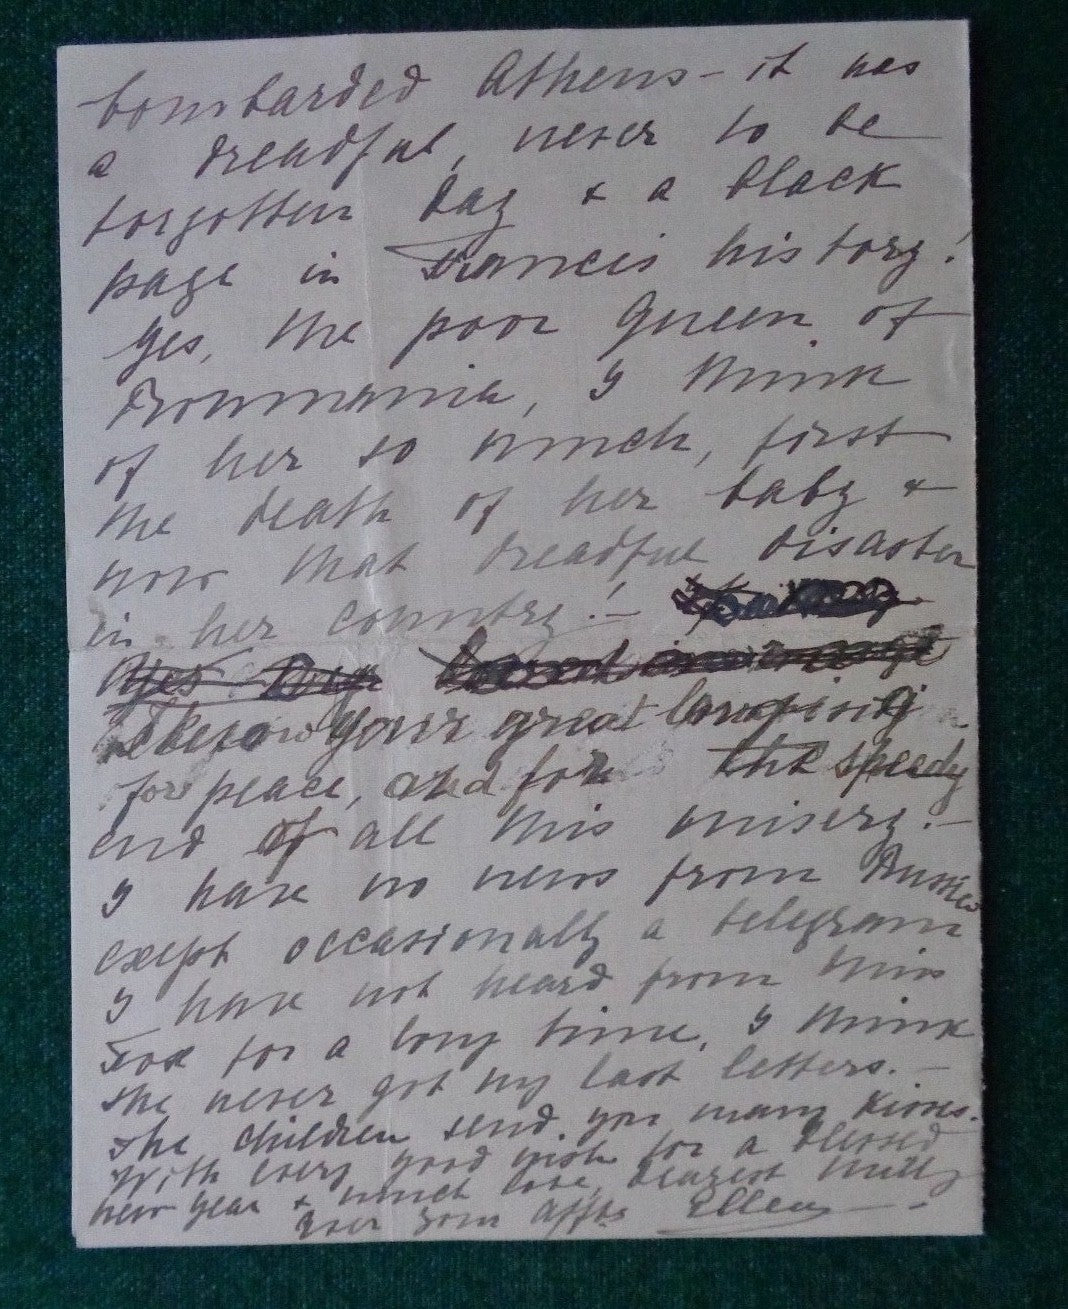 bombarded Athens - it was
a dreadful, never to be
forgotten day & a black
page in Francis history!
Yes, the poor Queen of
Roumania, I think
of her so much, first
the death of her baby &
now that dreadful disaster
in her country! -
Yes
I know your great longing
for peace, and for the speedy
end of all this misery. -
I have no news from Russia
exept occasionally a telegram
I have not heard from Miss
Fox for a long time, I think
she never got my last letters. -
The children send you many kisses.
With every good wish for a blessed
New Year & much love, dearest Milly
Ever your affte Ellen -